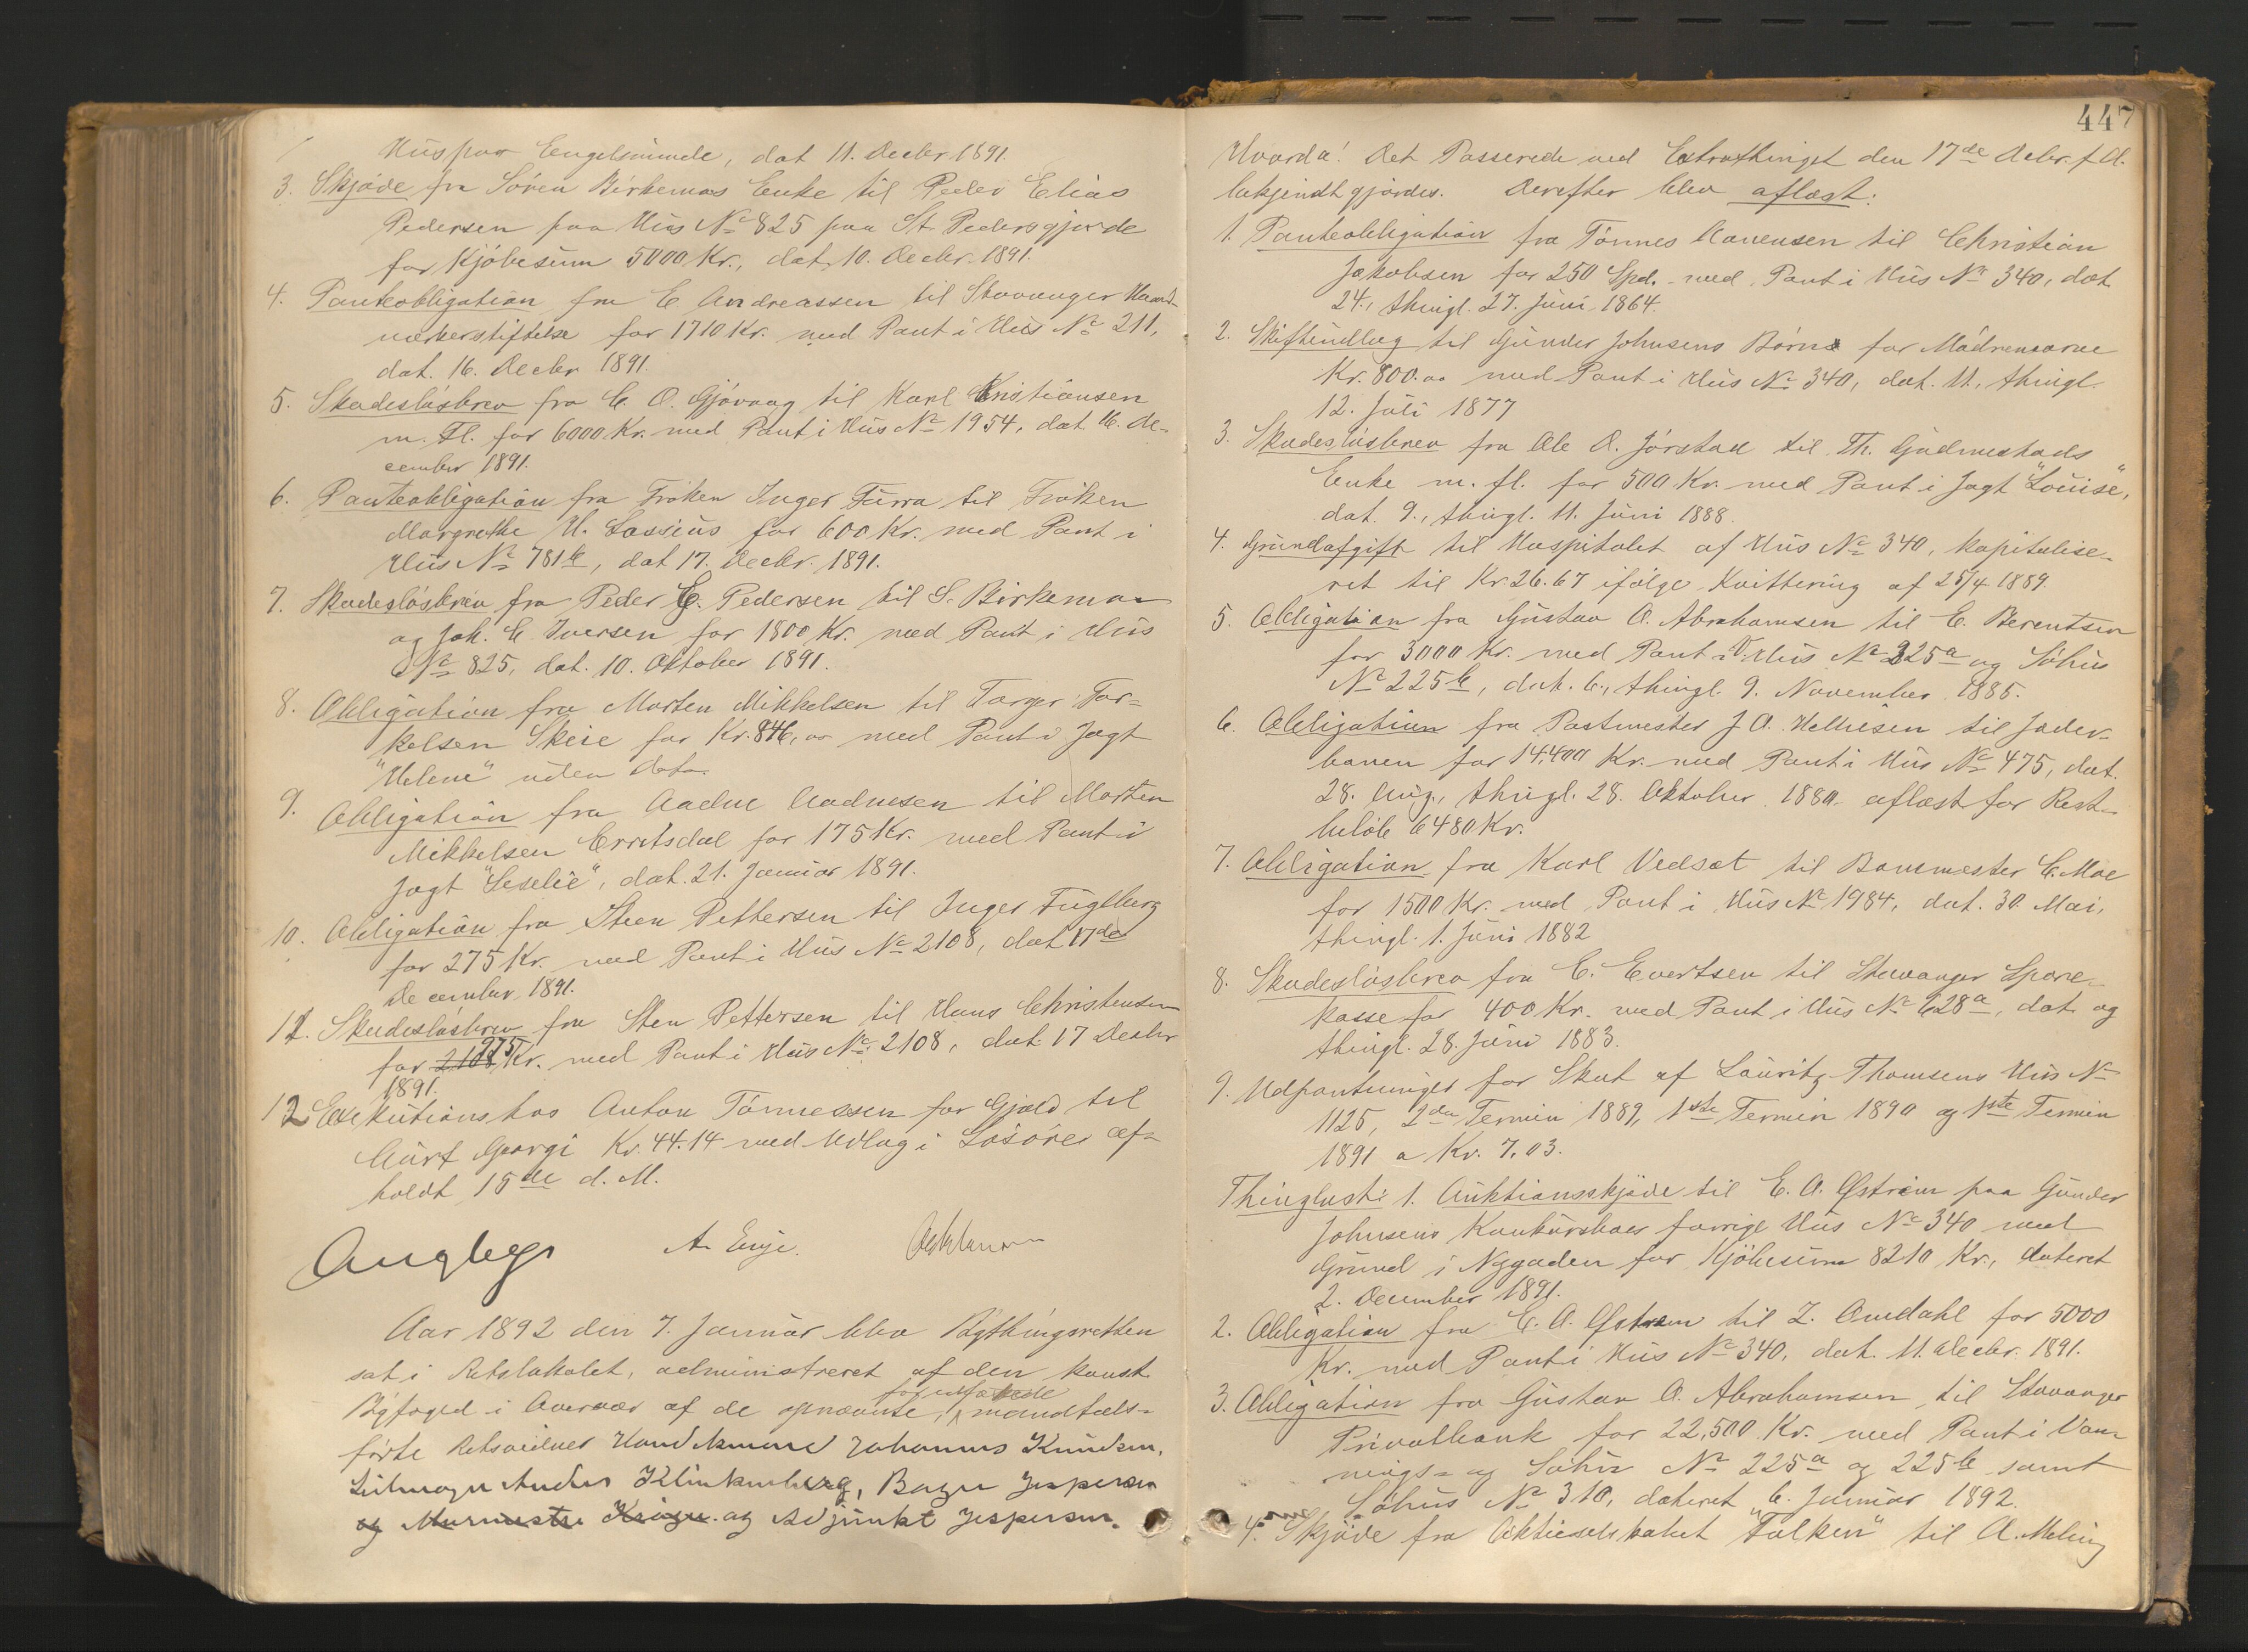 Huspar Engelsminde, dat 11. Decbr 1891.
3. Skjøde fra Sören Birkemos Enke til Peder Elias
Pedersen paa Hus No 825 paa St. Pedersgjerde
for Kjöbesum 5000 Kr., dat. 10. Decbr. 1891.
4. Panteobligation fra E Andreassen til Stavanger Haand-
værkerstiftelse for 1710 Kr. med Pant i Hus No 211,
dat. 16. Decbr 1891.
5. Skadeslösbrev fra C. O. Gjövaag til Karl Kristiansen
m. Fl. for 6000 Kr. med Pant i Hus No 1954, dat. 16. De-
cember 1891.
6. Panteobligation fra Fröken Inger Furra til Fröken
Margrethe H. Lassius for 600 Kr. med Pant i
Hus No 781b, dat 17. Decbr. 1891.
7. Skadeslösbrev fra Peder E. Pedersen til S. Birkemoe
og Joh. C. Iversen for 1800 Kr. med Pant i Hus
No 825, dat. 10. Oktober 1891.
8. Obligation fra Morten Mikkelsen til Torger Tor-
kelsen Skeie for Kr. 846,00 med Pant i Jagt
"Helene" uden Data.
9. Obligation fra Aadne Aadnesen til Morten
Mikkelsen Erretsdal for 175 Kr. med Pant i
Jagt "Leselie", dat. 21. Januar 1891.
10. Obligation fra Steen Pettersen til Inger Fuglberg
for 275 Kr. med Pant i Hus No 2108, dat 17de
December 1891.
11. Skadeslösbrev fra Sten Pettersen til Hans Christensen
for 2108 275 Kr. med Pant i Hus No 2108, dat. 17 Decbr
1891.
12 Exekution hos Anton Tönnessen for Gjæld til
Curt Georgi Kr. 44.14 med Udlæg i Lösöre af-
holdt 15de d. M.
A. Enge.
Aar 1892 den 7. Januar blev Bythingsretten
sat i Retslokalet, administreret af den konst.
Byfoged i Overvær af de opnævnte, for utfatede mandtals-
förte Retsvidner Handelsmand Johannes Knudsen,
Seilmager Andas Klinkenberg, Bager Jespersen
og Murmester Kröger og Adjunkt Jespersen.
447
Hvorda! Det Passerede ved Extrathinget den 17de Decbr. f. A.
bekjendtgjordes. Derefter blev aflæst:
1. Panteobligation fra Tönnes Aanensen til Christian
Jakobsen for 250 Spd. med Pant i Hus No 340, dat.
24., thingl. 27. Juni 1864.
2. Skifteudlæg til Gunder Johnsens Börn for Mödrenearve
Kr. 800.00 med Pant i Hus No 340, dat. 11., thingl.
12. Juli 1877
3. Skadeslösbrev fra Ole O. Jörstad til Th. Gudmestads
Enke m. fl. for 500 Kr. med Pant i Jagt "Louise",
dat. 9., thingl. 11. Juni 1888.
4. Grundafgift til Hospitalet af Hus No 340, kapitalise-
ret til Kr. 26.67 ifölge Kvittering af 25/4 1889.
5. Obligation fra Gustav A. Abrahamsen til C. Berentsen
for 3000 Kr. med Pant i V. Hus No 225a og Söhus
No 225b, dat. 6., thingl. 9. November 1885.
6. Obligation fra Postmester J A. Helliesen til Jæder-
banen for 14,400 Kr. med Pant i Hus No 475, dat.
28. Aug., thingl. 28. Oktober 1880. aflæst for Rest-
belöb 6480 Kr.
7. Obligation fra Karl Vedsat til Banemester C. Moe
for 1500 Kr. med Pant i Hus No 1984, dat. 30. Mai,
thingl. 1. Juni 1882
8. Skadeslösbrev fra C. Evertsen til Stavanger Spare-
kasse for 400 Kr. med Pant i Hus No 628a, dat. og
thingl. 28. Juni 1883.
9. Udpantninger for Skat af Lauritz Thomsens Hus No
1125, 2den Termin 1889, 1ste Termin 1890 og 1ste Termin
1891 a Kr. 7,03.
Thinglæst: 1. Auktionsskjöde til E. A. Østrem paa Gunder
Johnsens Konkursboes forrige Hus No 340 med
Grund i Nygaden for Kjöbesum 8210 Kr., dateret
2. December 1891.
2. Obligation fra E. A. Østrem til Z. Omdahl for 5000
Kr. med Pant i Hus No 340, dat. 11. Decbr. 1891.
3. Obligation fra Gustav A. Abrahamsen til Stavanger
Privatbank for 22,500 Kr. med Pant i Vaa-
nings- og Söhus No 225a og 225b samt
Söhus No 310, dateret 6. Januar 1892.
4. Skjöde fra Aktieselskabet "Falken" til A. Meling